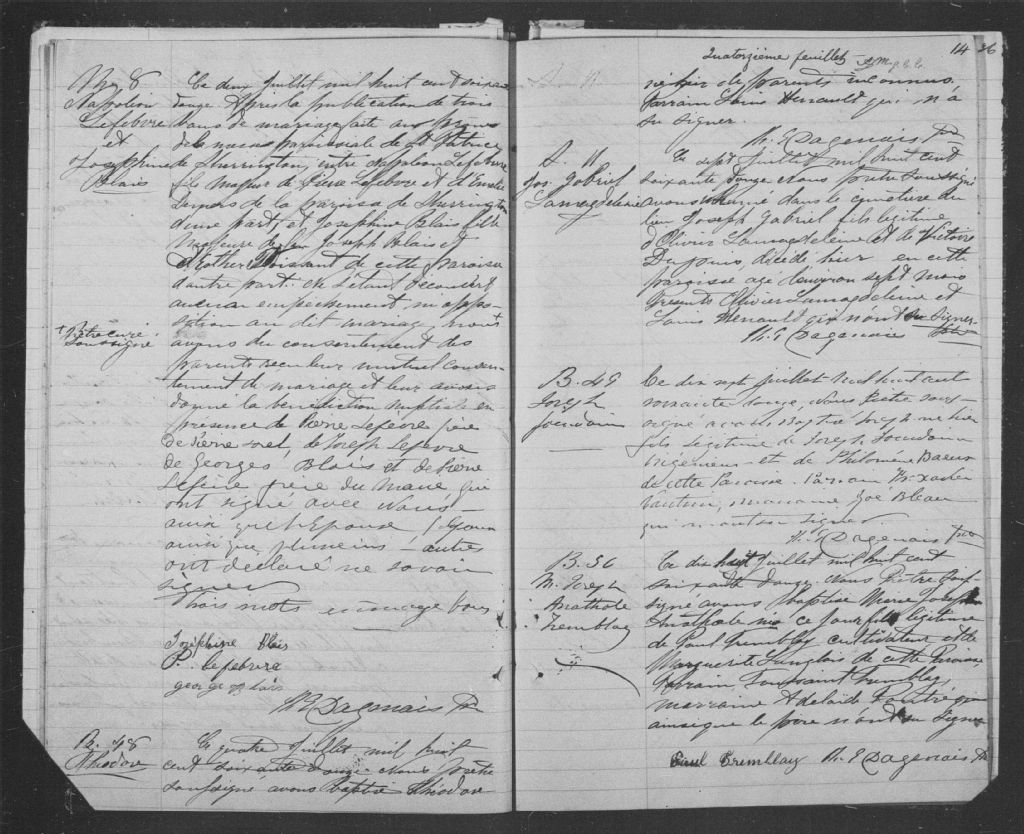 M. 8
Napoleon
Lefebvre
et
Josephine
Blais
Ce deux Juillet mil huit cent soixante
douze Après la publication de trois
bans de mariage faite au prône
de la messe paroissiale de St Patrice
de Sherrington, entre Napoleon Lefebvre
fils majeur de Pierre Lefebvre et d'Emelie
de la paroisse de Sherrington
d'une part, et Josephine Blais fille
majeure de feu Joseph Blais et
d'Esther de cette paroisse
d'autre part: ne s'étant découvert
aucun empêchement ni oppo-
sition au dit mariage nous
+ Prêtre curé
soussigné
avons du consentement des
parents reçu leur mutuel consen-
tement de mariage et leur avons
donné la bénédiction nuptiale en
présence de Pierre Lefevre père
de Pierre de Joseph Lefevre
de Georges Blais et de Pierre
Lefevre frère du Marié qui
ont signé avec Nous -
ainsi que l'Epouse
ainsi que plusieurs - autres
ont déclaré ne savoir
signer
Trois mots en marge bons
Joséphine Blais
P. Lefebvre
george blais
M E Dagenais Ptr
B. 48
Theodore
Ce quatre Juillet mil huit
cent soixante douze Nous Prêtre
soussigné avons baptisé Theodore
14 26
Quatorzième feuillet
de parents inconnus.
Parrain Louis Henault qui n'a
su signer.
M. E Dagenais Ptr
S. 11
Jos. Gabriel
Lamagdeleine
Ce sept Juillet mil huit cent
soixante douze Nous Prêtre soussigné
avons inhumé dans le cimetière du
lieu Joseph Gabriel fils legitime
d'Olivier Lamagdeleine et de Victoire
Dupuis, décédé hier en cette
paroisse agé d'environ sept mois
Presents Olivier Lamagdeleine et
Louis Henault qui n'ont su signer
M. E Dagenais Ptre
B. 49
Joseph
Jourdain
Ce dix sept Juillet mil huit cent
soixante douze, Nous Prêtre sous-
signé avons Baptisé Joseph né hier
fils légitime de Joseph Jourdain
et de Philomène
de cette Paroisse. Parrain Xavier
marraine Zoé Bleau
qui n'ont su signer
M. E Dagenais Ptre
B. 50
M. Joseph
Anathole
Tremblay
Ce dix huit Juillet mil huit cent
soixante douze Nous Prêtre sous-
signé avons baptisé Marie Joseph
Anathole né ce jour fils légitime
de Paul Tremblay cultivateur et de
Marguerite Langlois de cette Paroisse
Parrain, Toussaint Tremblay,
marraine Adelaide qui
ainsi que le père n'ont su signer
Paul Tremblay M. E Dagenais Ptr